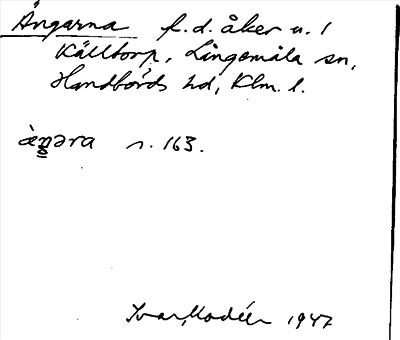 Ängarna f.d. åker u. 1
Källtorp, Långemåla sn,
Handbörds hd, Klm. l.
s. 163.
Ivar Modéer 1947